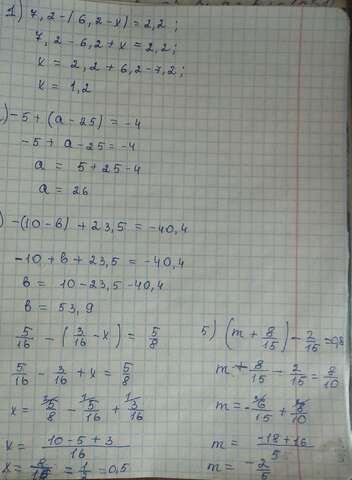 1) 7,2-(6,2-x)=2,2;
7,2-6,2+x=2,2;
x=2,2+6,2-7,2;
x=1,2
)-5+(a-25)=-4
-5+a-25=-4
a=5+25-4
a=26
)-(10-b)+23,5=-40,4
-10+b+23,5=-40,4
b=10-23,5-40,4
b=53,9
5/16-(3/16-x)=5/8
5/16-3/16+x=5/8
x=5/8-5/16+3/16
x=(10-5+3)/16
x=8/16=1/5=0,5
5) (m+8/15)-2/15=0,8
m+8/15-2/15=8/10
m=-6/15+8/10
m=(-18+16)/5
m=-2/5